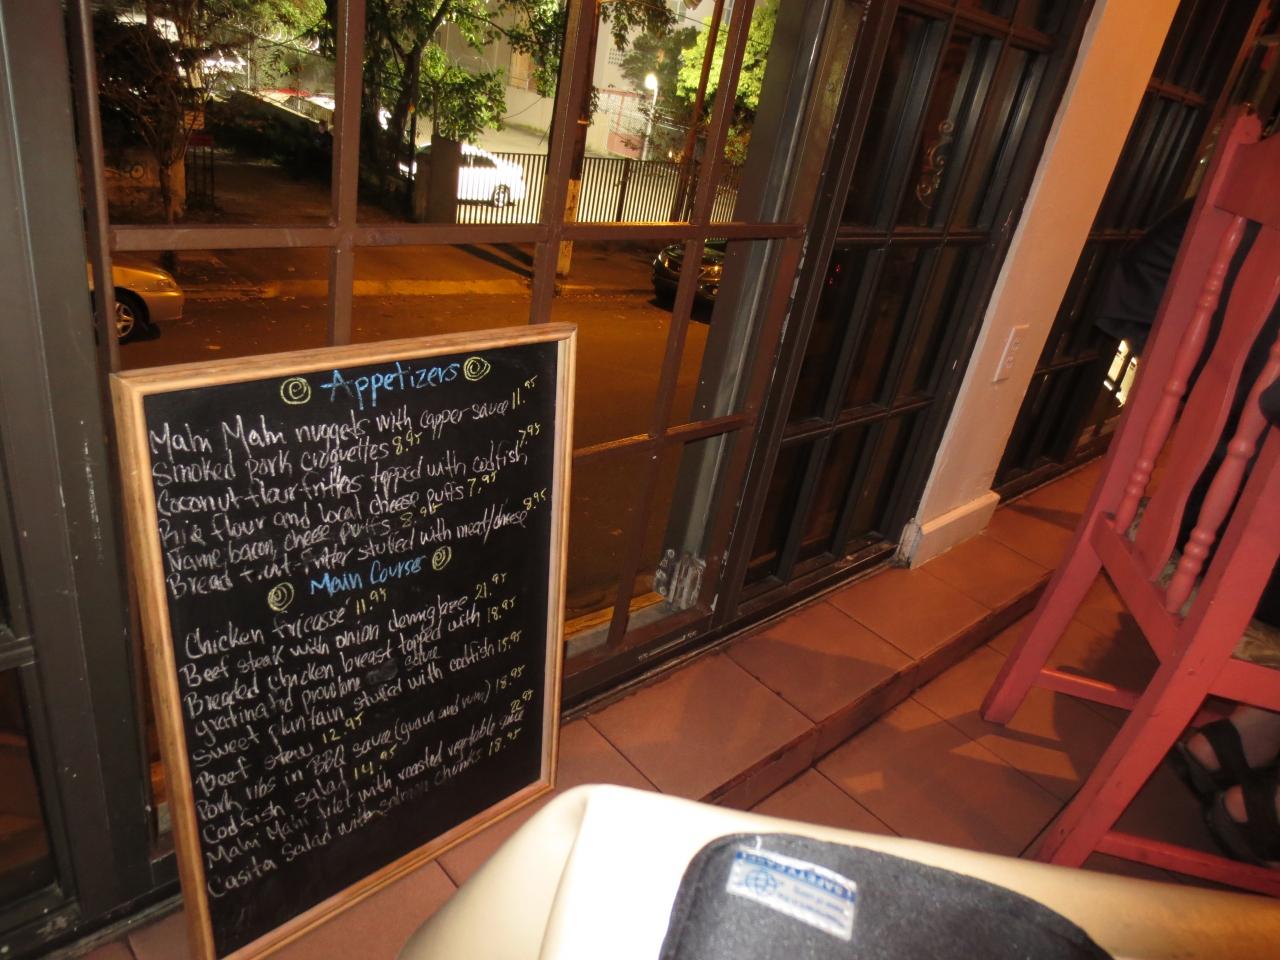 Appetizers
Mahi Mahi nuggets with capper sauce 11.95
Smoked pork croquettes 8.95
Coconut flour fritters topped with codfish 7.95
Rice flour and local cheese puffs 7.95
Ñame, bacon, cheese puffs 8.95
Bread fruit fritter stuffed with meat/cheese 8.95
Main Course
Chicken fricasse 11.95
Beef steak with onion demiglaze 21.95
Breaded chicken breast topped with 18.95
gratinated provolone
Sweet plantain stuffed with codfish 15.95
Beef stew 12.95
Pork ribs in BBQ sauce (guava and rum) 18.95
Codfish salad 14.95
Mahi Mahi filet with roasted vegetable sauce 22.95
Casita Salad with salmon chunks 18.95